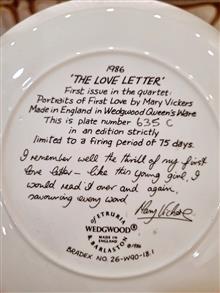 1986
'THE LOVE LETTER'
First issue in the quartet:
Portraits of First Love by Mary Vickers
Made in England in Wedgwood Queen's Ware
This is plate number 635 C
in an edition strictly
limited to a firing period of 75 days.
I remember well the thrill of my first
love letter - like this young girl, I
would read it over and again,
savouring every word.
Mary Vickers
OF ETRURIA
WEDGWOOD®
MADE IN
ENGLAND
& BARLASTON
©1986
BRADEX NO. 26-W90-18.1